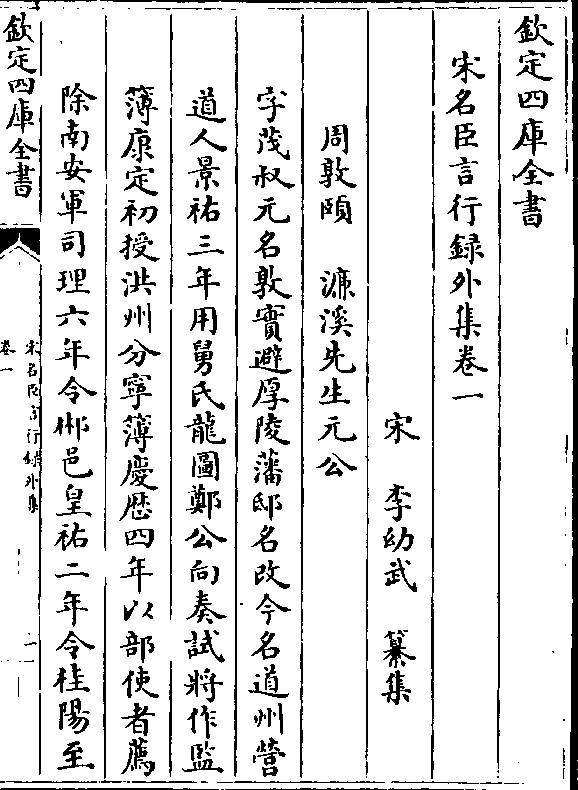 欽定四庫全書
宋名臣言行録外集卷一
宋 李幼武 纂集
周敦頤 濂溪先生元公
字茂叔元名敦實避厚陵藩邸名改今名道州營
道人景祐三年用舅氏龍圖鄭公向奏試將作監
簿康定初授洪州分寧簿慶厯四年以部使者薦
除南安軍司理六年令郴邑皇祐二年令桂陽至
欽定四庫全書
宋名臣言行録外集
卷一
一